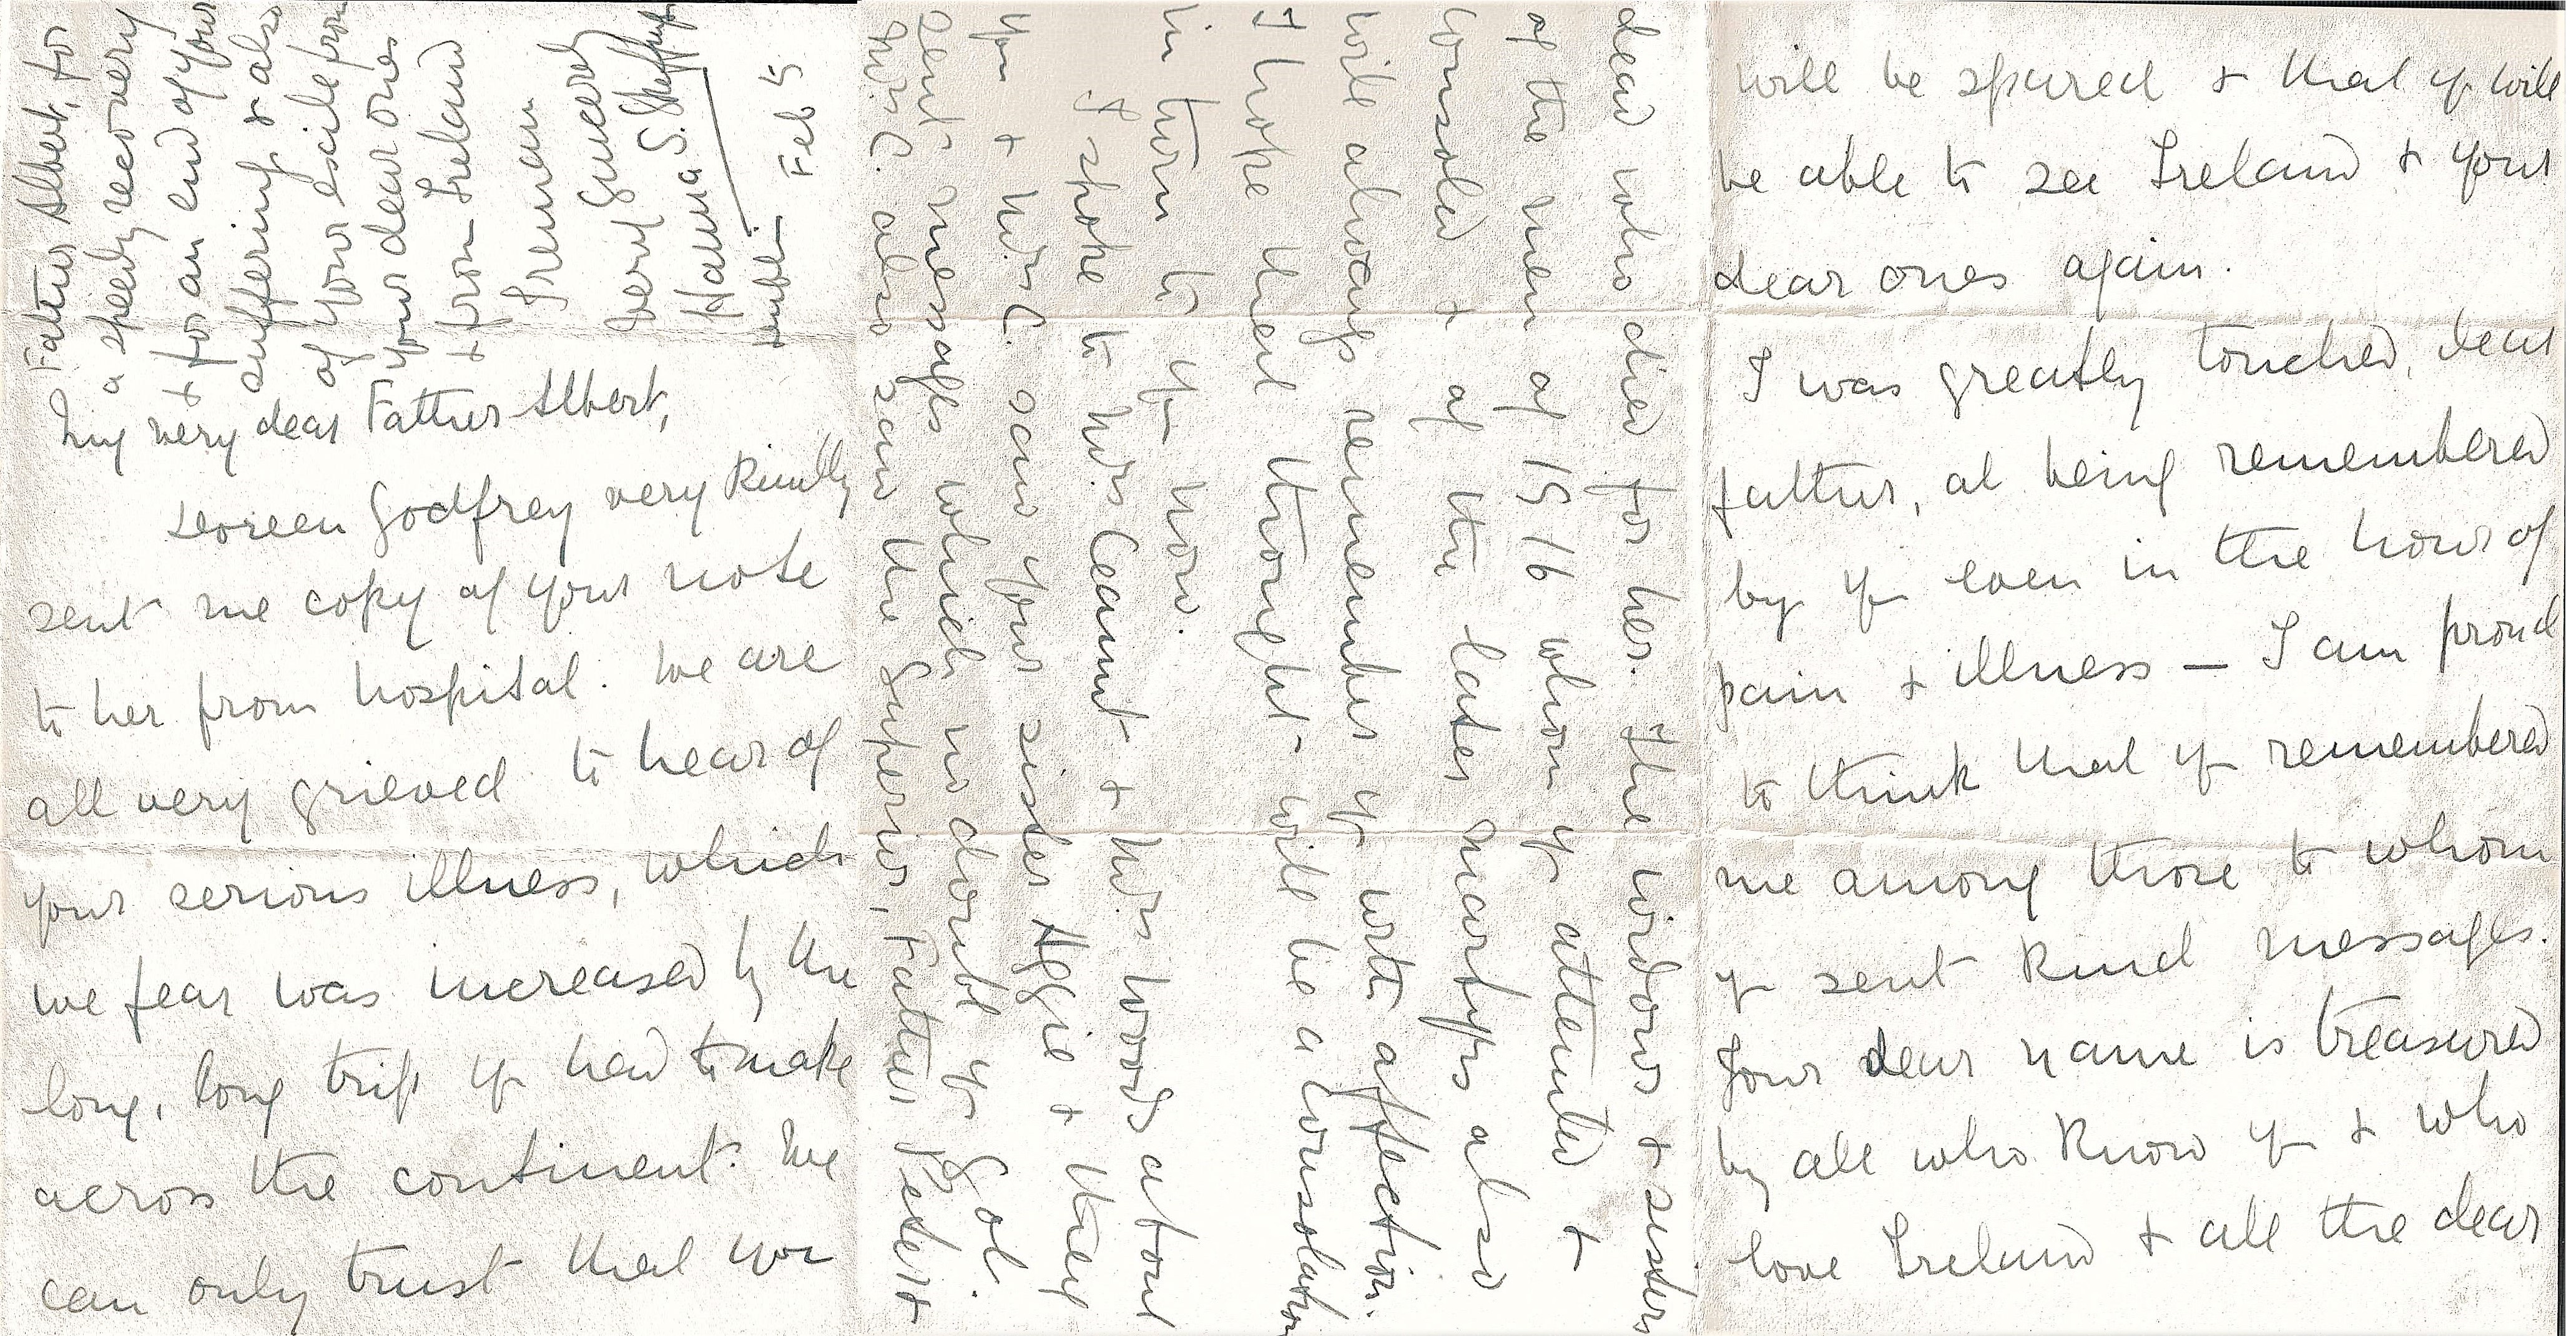 My very dear Father Albert,
Doreen Godfrey very kindly
sent me copy of your note
to her from hospital. We are
all very grieved to hear of
your serious illness, which
we fear was increased by the
long, long trip you had to make
across the continent. We
can only trust that you
will be spared & that you will
be able to see Ireland & your
dear ones again.
I was greatly touched, dear
father, at being remembered
by you even in the hour of
pain & illness — I am proud
to think that you remembered
me among those to whom
you sent kind messages.
Your dear name is treasured
by all who know you & who
love Ireland & all the dear
dead who died for her. The widows & sisters
of the men of 1916 whom you attended &
consoled & of the later martyrs also
will always remember you with affection.
I hope that thought will be a consolation
in turn to you now.
I spoke to Mrs Ceannt & Mrs Woods about
you & Mrs C. saw your sister Aggie & they
sent messages which no doubt you got.
Mrs C. also saw the Superior, Father Peter &
Father Albert, for
a speedy recovery
& for an end of your
suffering & also
of your exile from
your dear ones
& from Ireland
I remain
very sincerely
Hanna S. Skeffington
Dublin Feb 5